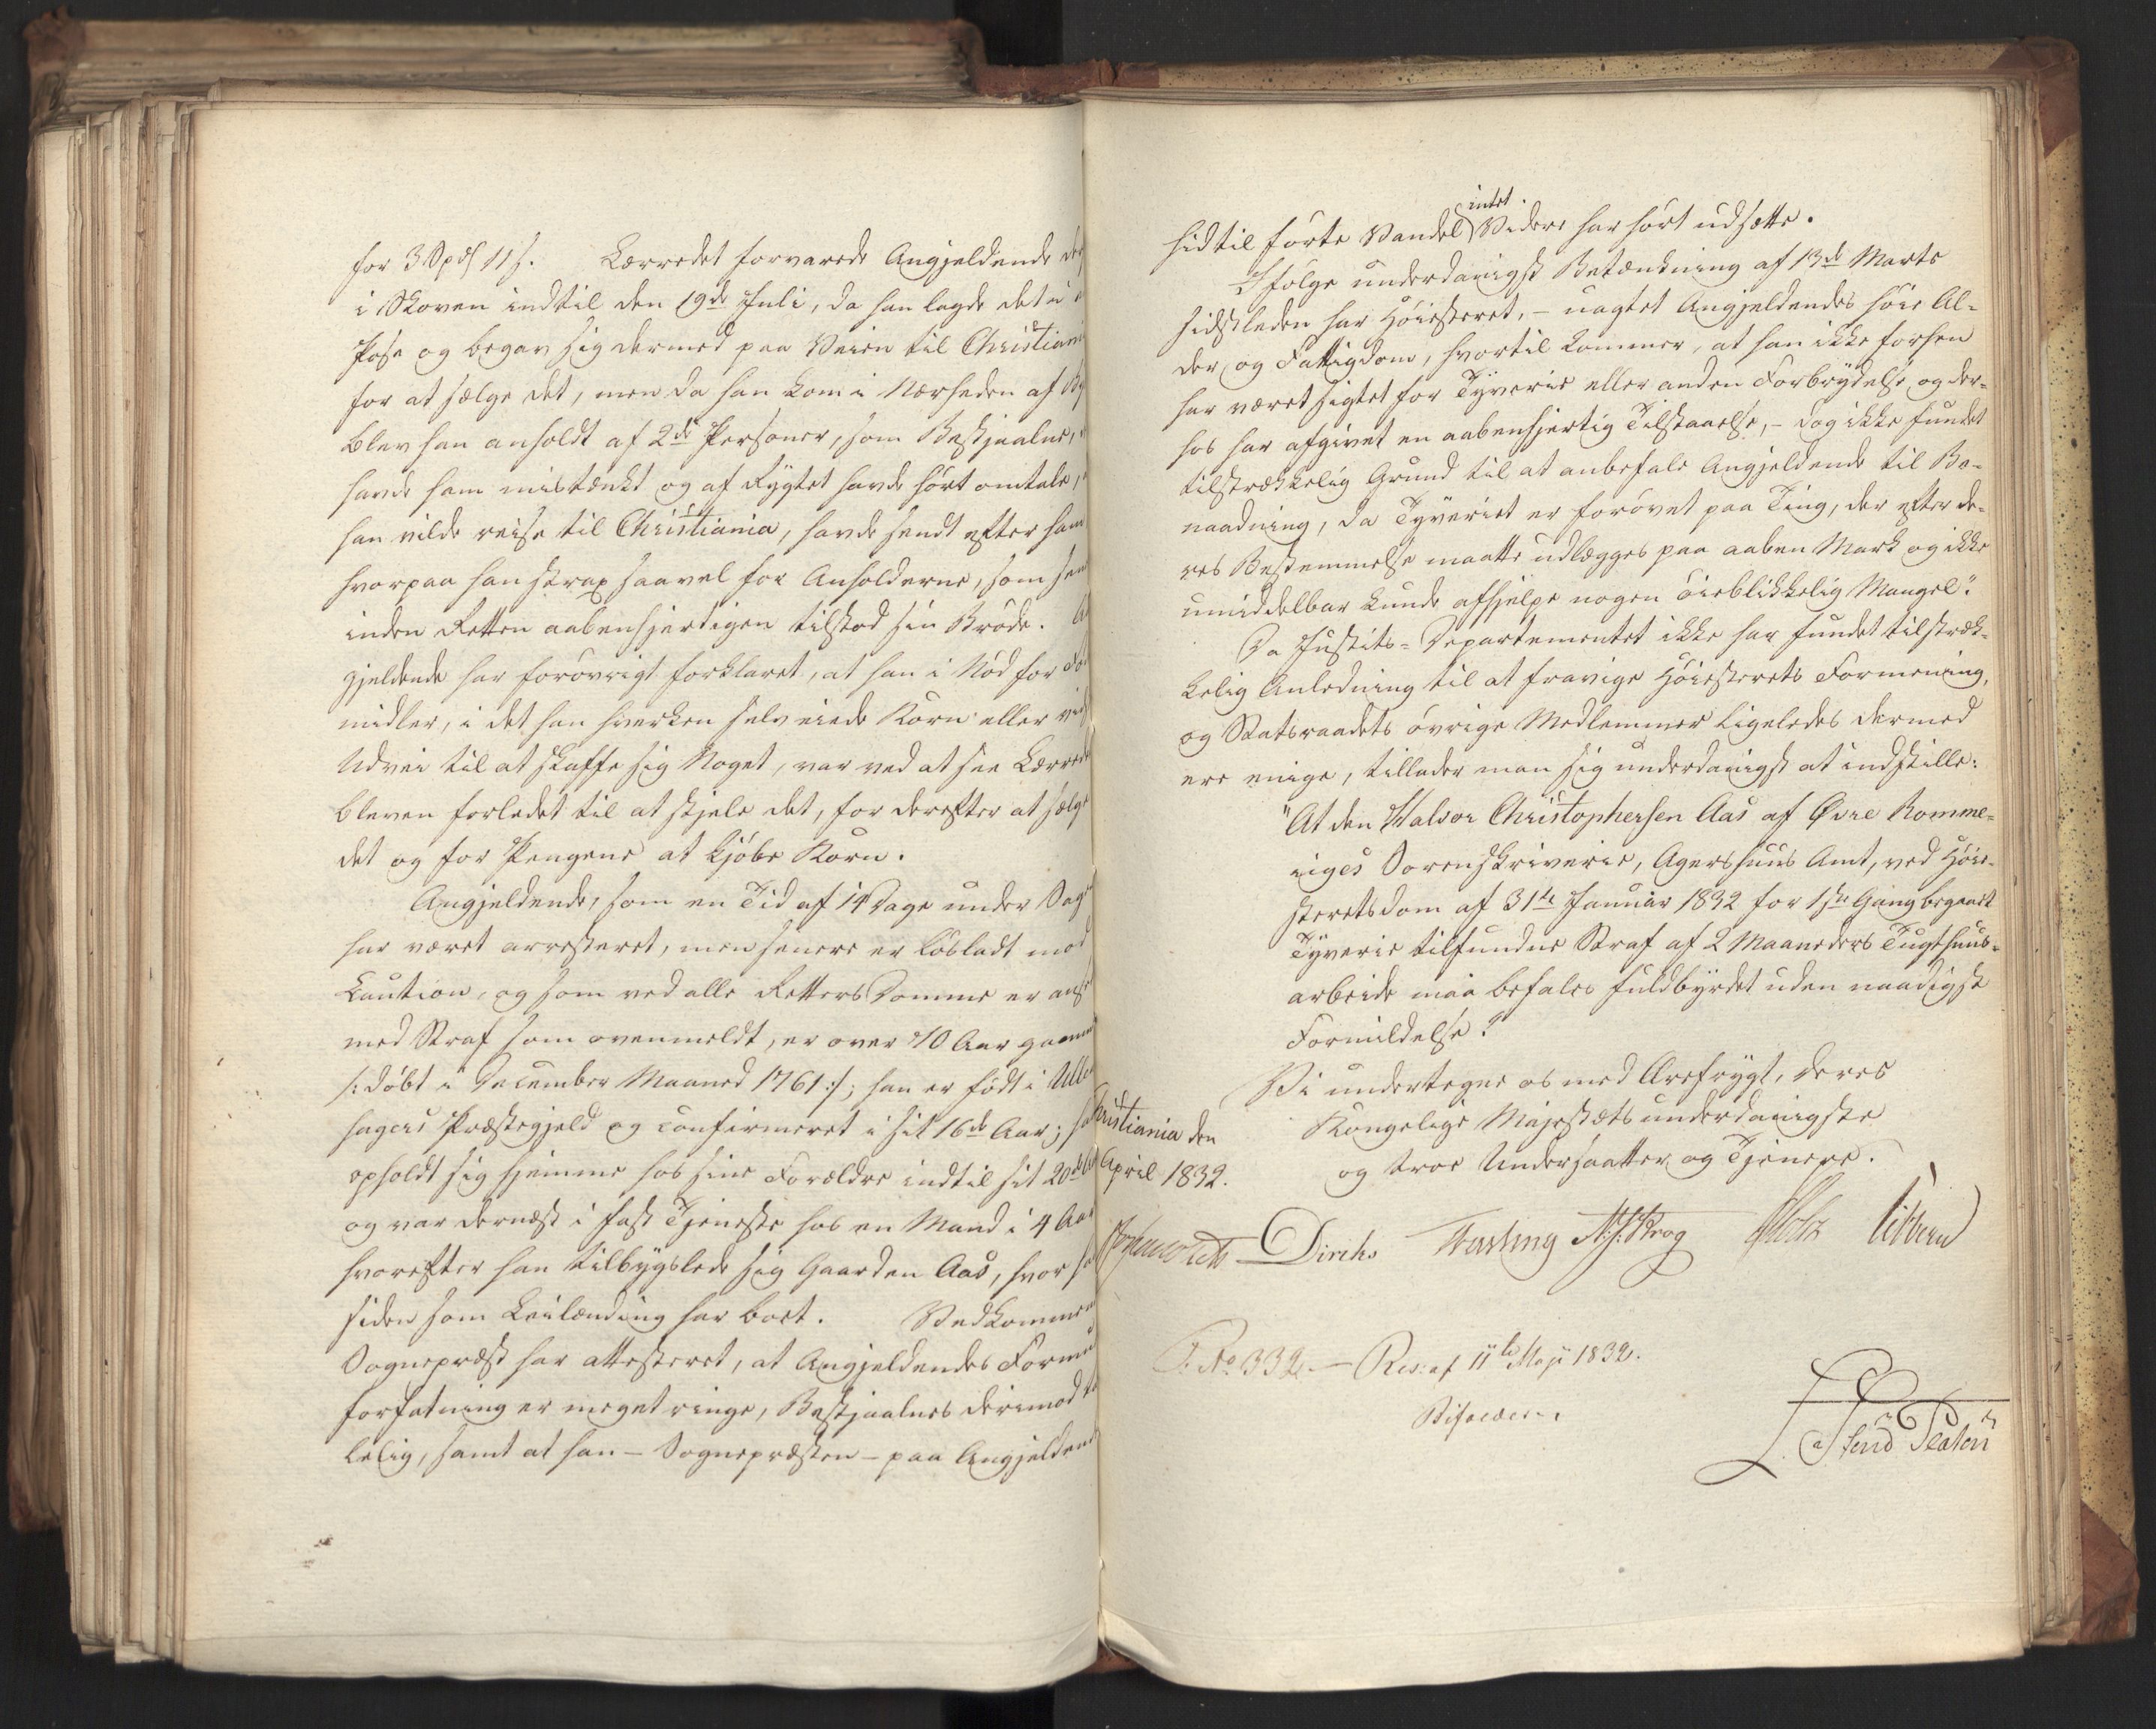 for 3 Spd 11 s. Lærredet forvarede Angjeldende der
i Skoven indtil den 19de Juli, da han lagde det i
Pose og begav sig dermed paa Veien til Christiani
for at sælge det, men da han kom i Nærheden af By
blev han anholdt af 2de Personer, som Bestjaalne,
havde ham mistænkt og af Rygtet havde hört omtale,
han vilde reise til Christiania, havde sendt efter ham
hvorpaa han strax saavel for Anholderne, som sen
inden Retten aabenhjertigen tilstod sin Bröde. A
gjeldende har forövrigt forklaret, at han i Nöd for Fö
midler, i det han hverken selv eiede Korn eller vid
Udvei til at skaffe sig Noget, var ved at see Lærrede
bleven forledet til at stjele det, for derefter at sælge
det og for Pengene at kjöbe Korn.
Angjeldende, som en Tid af 14 Dage under Sag
har været arresteret, men senere er lösladt mod
Caution, og som ved alle Retters Domme er anse
med Straf som ovenmeldt, er over 70 Aar gamme
/: döbt i December Maaned 1761 :/; han er födt i Ulle
sagers Præstegjeld og confirmeret i sit 16de Aar; ha
opholdt sig hjemme hos sine Forældre indtil sit 20de Aar
og var dernæst i fast Tjeneste hos en Mand i 4 Aar
hvorefter han tilbygslede sig Gaarden Aas, hvor ha
siden som Leilænding har boet. Vedkommen
Sognepræst har attesteret, at Angjeldendes Formu
forfatning er meget ringe, Bestjaalnes derimod ta
lelig, samt at han - Sognepræsten - paa Angjeldend
intet
hidtil förte Vandel Videre har hört udsætte.
Ifölge underdanigst Betænkning af 13de Marts
sidstleden har Höiesteret, - uagtet Angjeldendes höie Al-
der og Fattigdom, hvortil kommer, at han ikke forhen
har været sigtet for Tyverie eller anden Forbrydelse og der-
hos har afgivet en aabenhjertig Tilstaaelse, - dog ikke fundet
tilstrækkelig Grund til at anbefale Angjeldende til Be-
naadning, da Tyveriet er forövet paa Ting, der efter de-
res Bestemmelse maatte udlægges paa aaben Mark og ikke
umiddelbar kunde afhjelpe nogen öieblikkelig Mangel."
Da Justits-Departementet ikke har fundet tilstræk-
kelig Anledning til at fravige Höiesterets Formening,
og Statsraadets övrige Medlemmer ligeledes dermed
ere enige, tillader man sig underdanigst at indstille:
"At den Halvor Christophersen Aas af Øvre Romme-
riges Sorenskriverie, Agershuus Amt, ved Höie-
steretsdom af 31te Januar 1832 for 1ste Gang begaaet
Tyverie tilfundne Straf af 2 Maaneders Tugthuus-
arbeide maa befales fuldbyrdet uden naadigst
Formildelse."
Vi undertegne os med Ærefrygt, Deres
Kongelige Majestæts underdanigste
og troe Undersaatter og Tjenere.
Christiania den
April 1832.
Diriks Fasting N. J. Krog Holst Vibbern
F. No 332. - Res: af 11te Maji 1832.
Bifaldes.